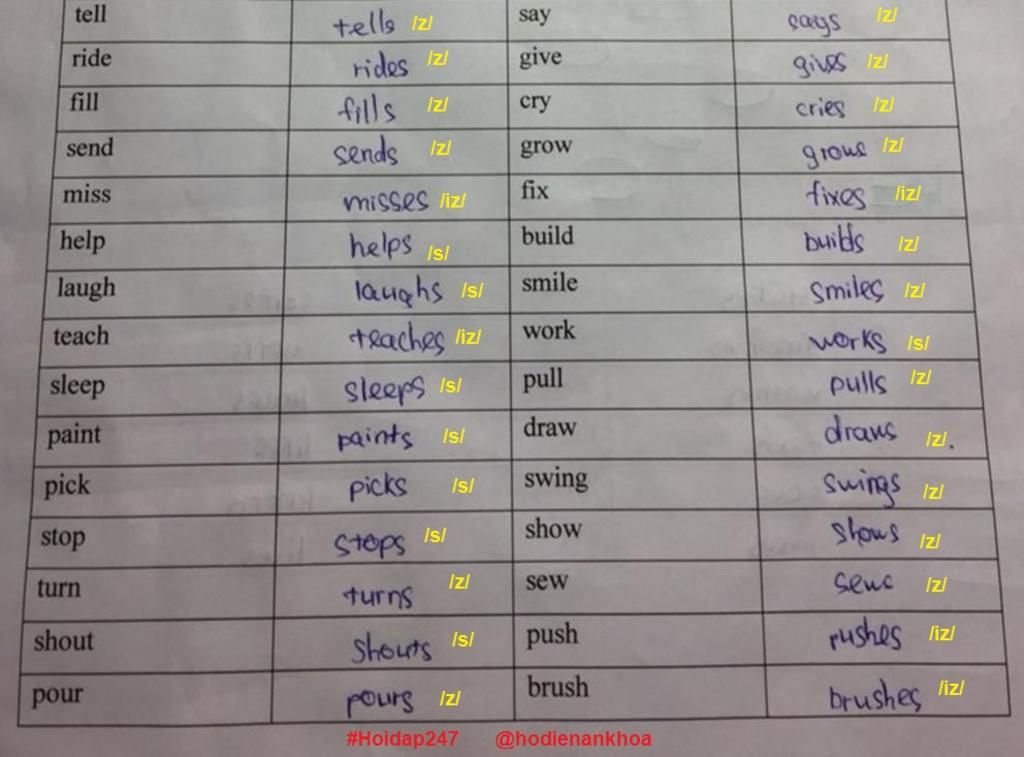 tell tells /z/ say says /z/
ride rides /z/ give gives /z/
fill fills /z/ cry cries /z/
send sends /z/ grow grows /z/
miss misses /iz/ fix fixes /iz/
help helps /s/ build builds /z/
laugh laughs /s/ smile smiles /z/
teach teaches /iz/ work works /s/
sleep sleeps /s/ pull pulls /z/
paint paints /s/ draw draws /z/.
pick picks /s/ swing swings /z/
stop stops /s/ show shows /z/
turn turns /z/ sew sews /z/
shout shouts /s/ push pushes /iz/
pour pours /z/ brush brushes /iz/
#Hoidap247 @hodienankhoa